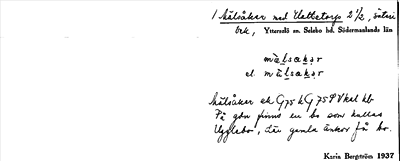 1 Mälsåker med Hatketorp 2 1/2, säteri
brk, Ytterselö sn. Selebo hd. Södermanlands län
mälsakɘr
el. mälsakɘr
Mälsåker ek G75 k G75
På gden finns en bs som kallas
Ugglebo, där gamla änkor få bo.
Karin Bergström 1937